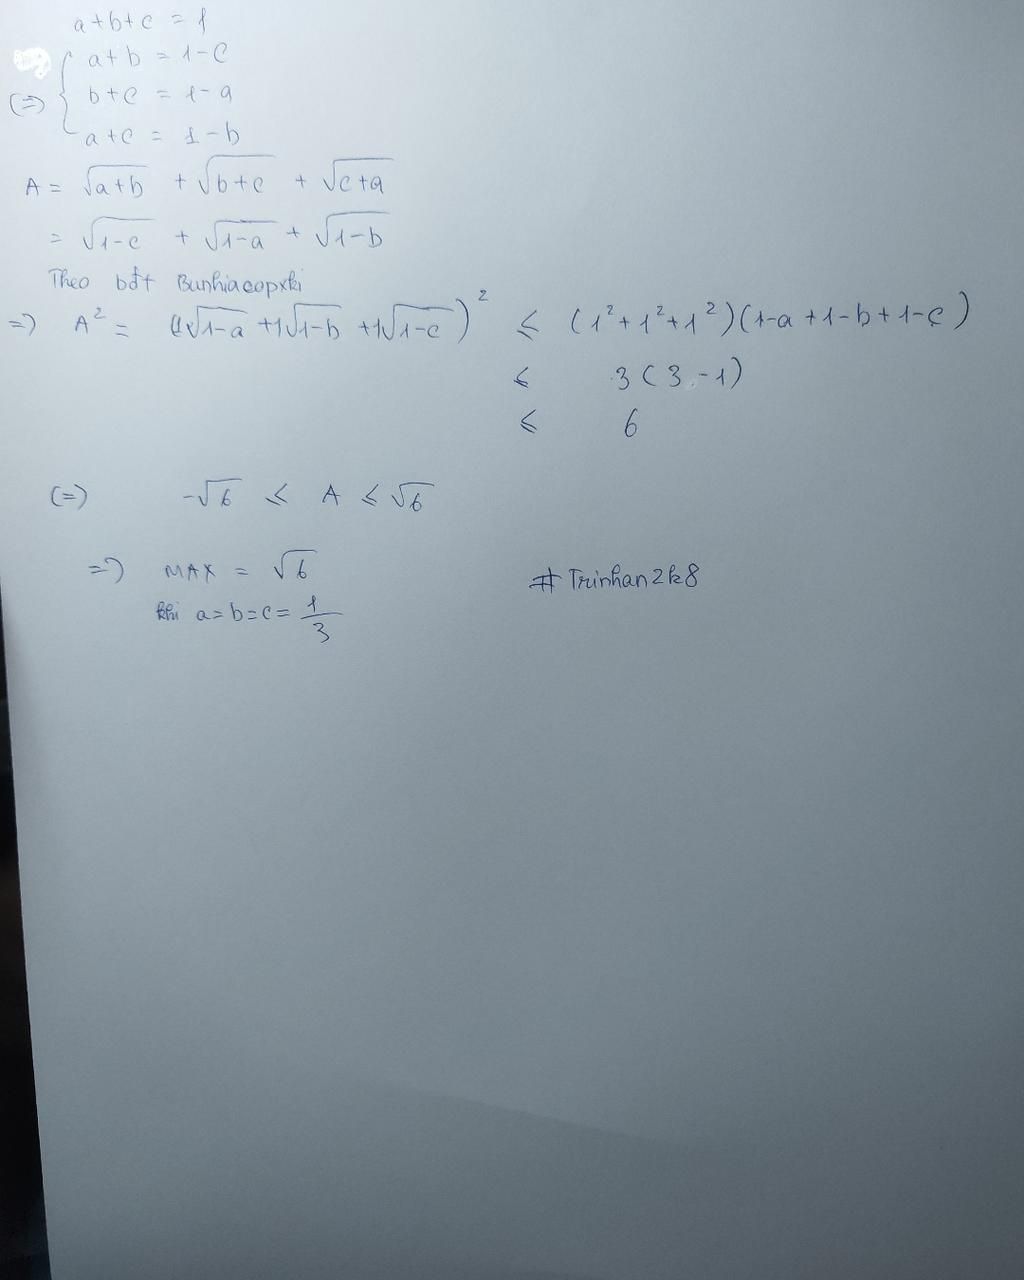 a+b+c = 1
(=) { a+b = 1-c
b+c = 1-a
a+c = 1-b
A = √(a+b) + √(b+c) + √(c+a)
= √(1-c) + √(1-a) + √(1-b)
Theo bđt Bunhiacopxki
=) A² = (1√(1-a) +1√(1-b) +1√(1-c))² ≤ (1²+1²+1²)(1-a+1-b+1-c)
≤ 3(3-1)
≤ 6
(=) -√6 ≤ A ≤ √6
=) MAX = √6
khi a=b=c= 1/3
# Trinhan2k8